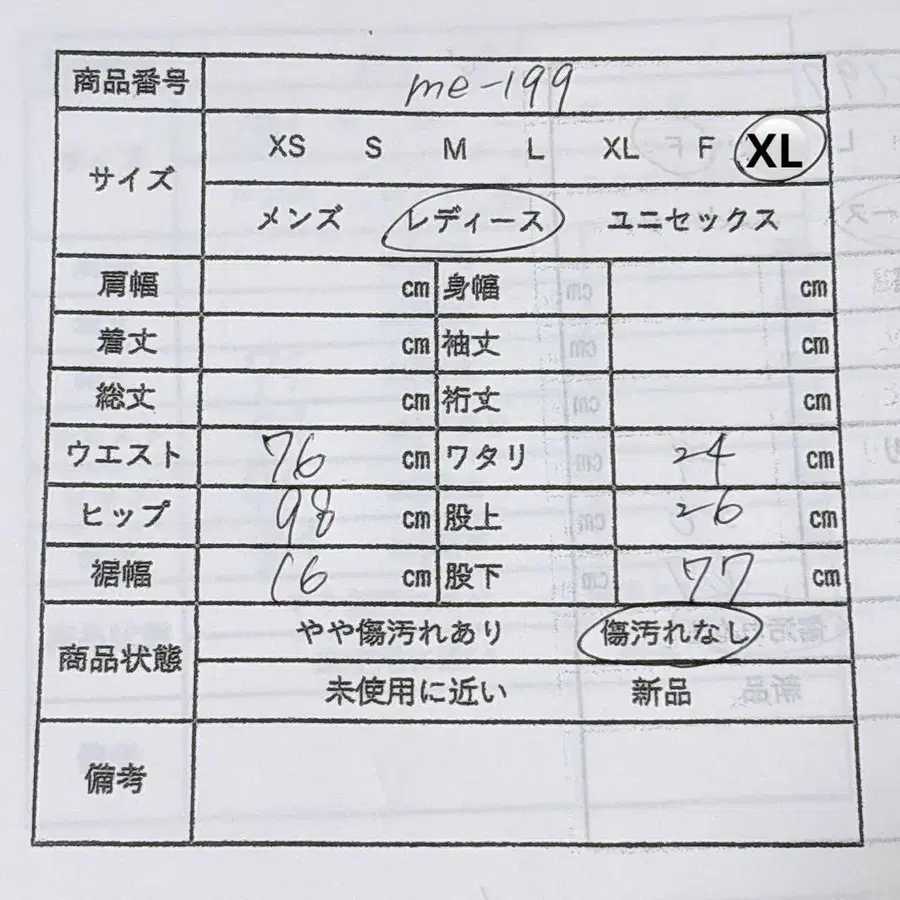 商品番号 me-199
サイズ XS S M L XL F XL
メンズ レディース ユニセックス
肩幅 cm 身幅 cm
着丈 cm 袖丈 cm
総丈 cm 裄丈 cm
ウエスト 76 cm ワタリ 24 cm
ヒップ 98 cm 股上 26 cm
裾幅 16 cm 股下 77 cm
商品状態 やや傷汚れあり 傷汚れなし
未使用に近い 新品
備考